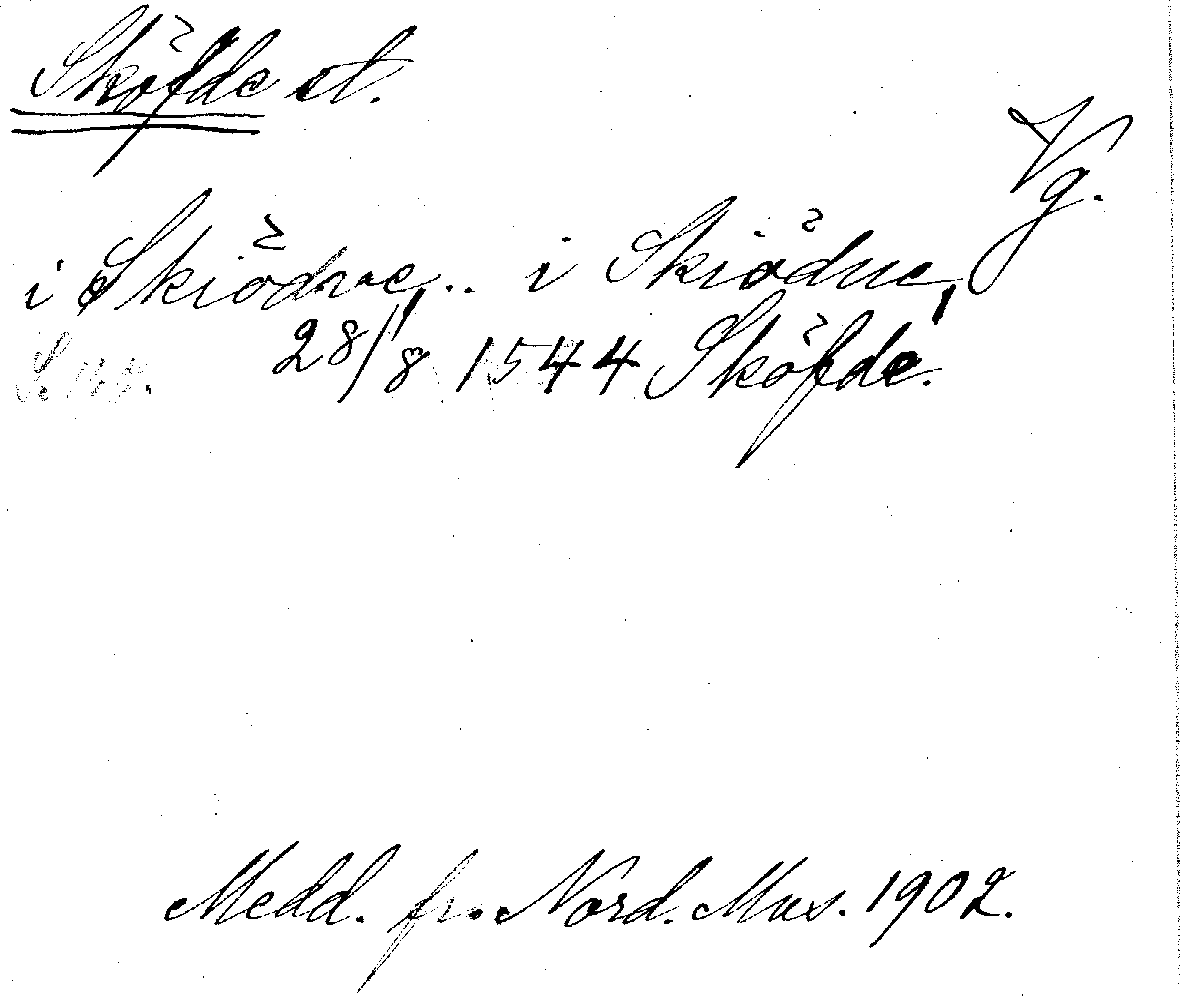 Sköfde st.
Vg.
i Skiödwe... i Skiödue,
28/8 1544 Sköfde.
Medd. fr. Nord. Mus. 1902.